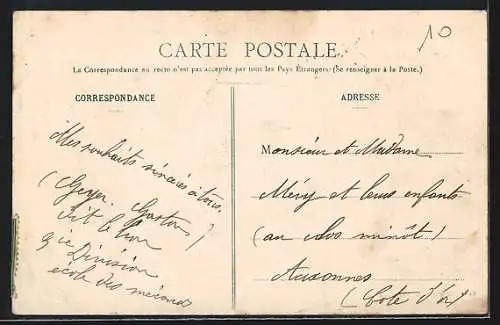 10
CARTE POSTALE
La Correspondance au recto n'est pas acceptée par tous les Pays Étrangers (Se renseigner à la Poste.)
CORRESPONDANCE
Mes souhaits sincères à tous.
(Geyer Gaston)
dit le lion
Division
école des mécanos
ADRESSE
Monsieur et Madame
Méry et leurs enfants
(au clos minôt)
Auxonnes
(Cote d'or)